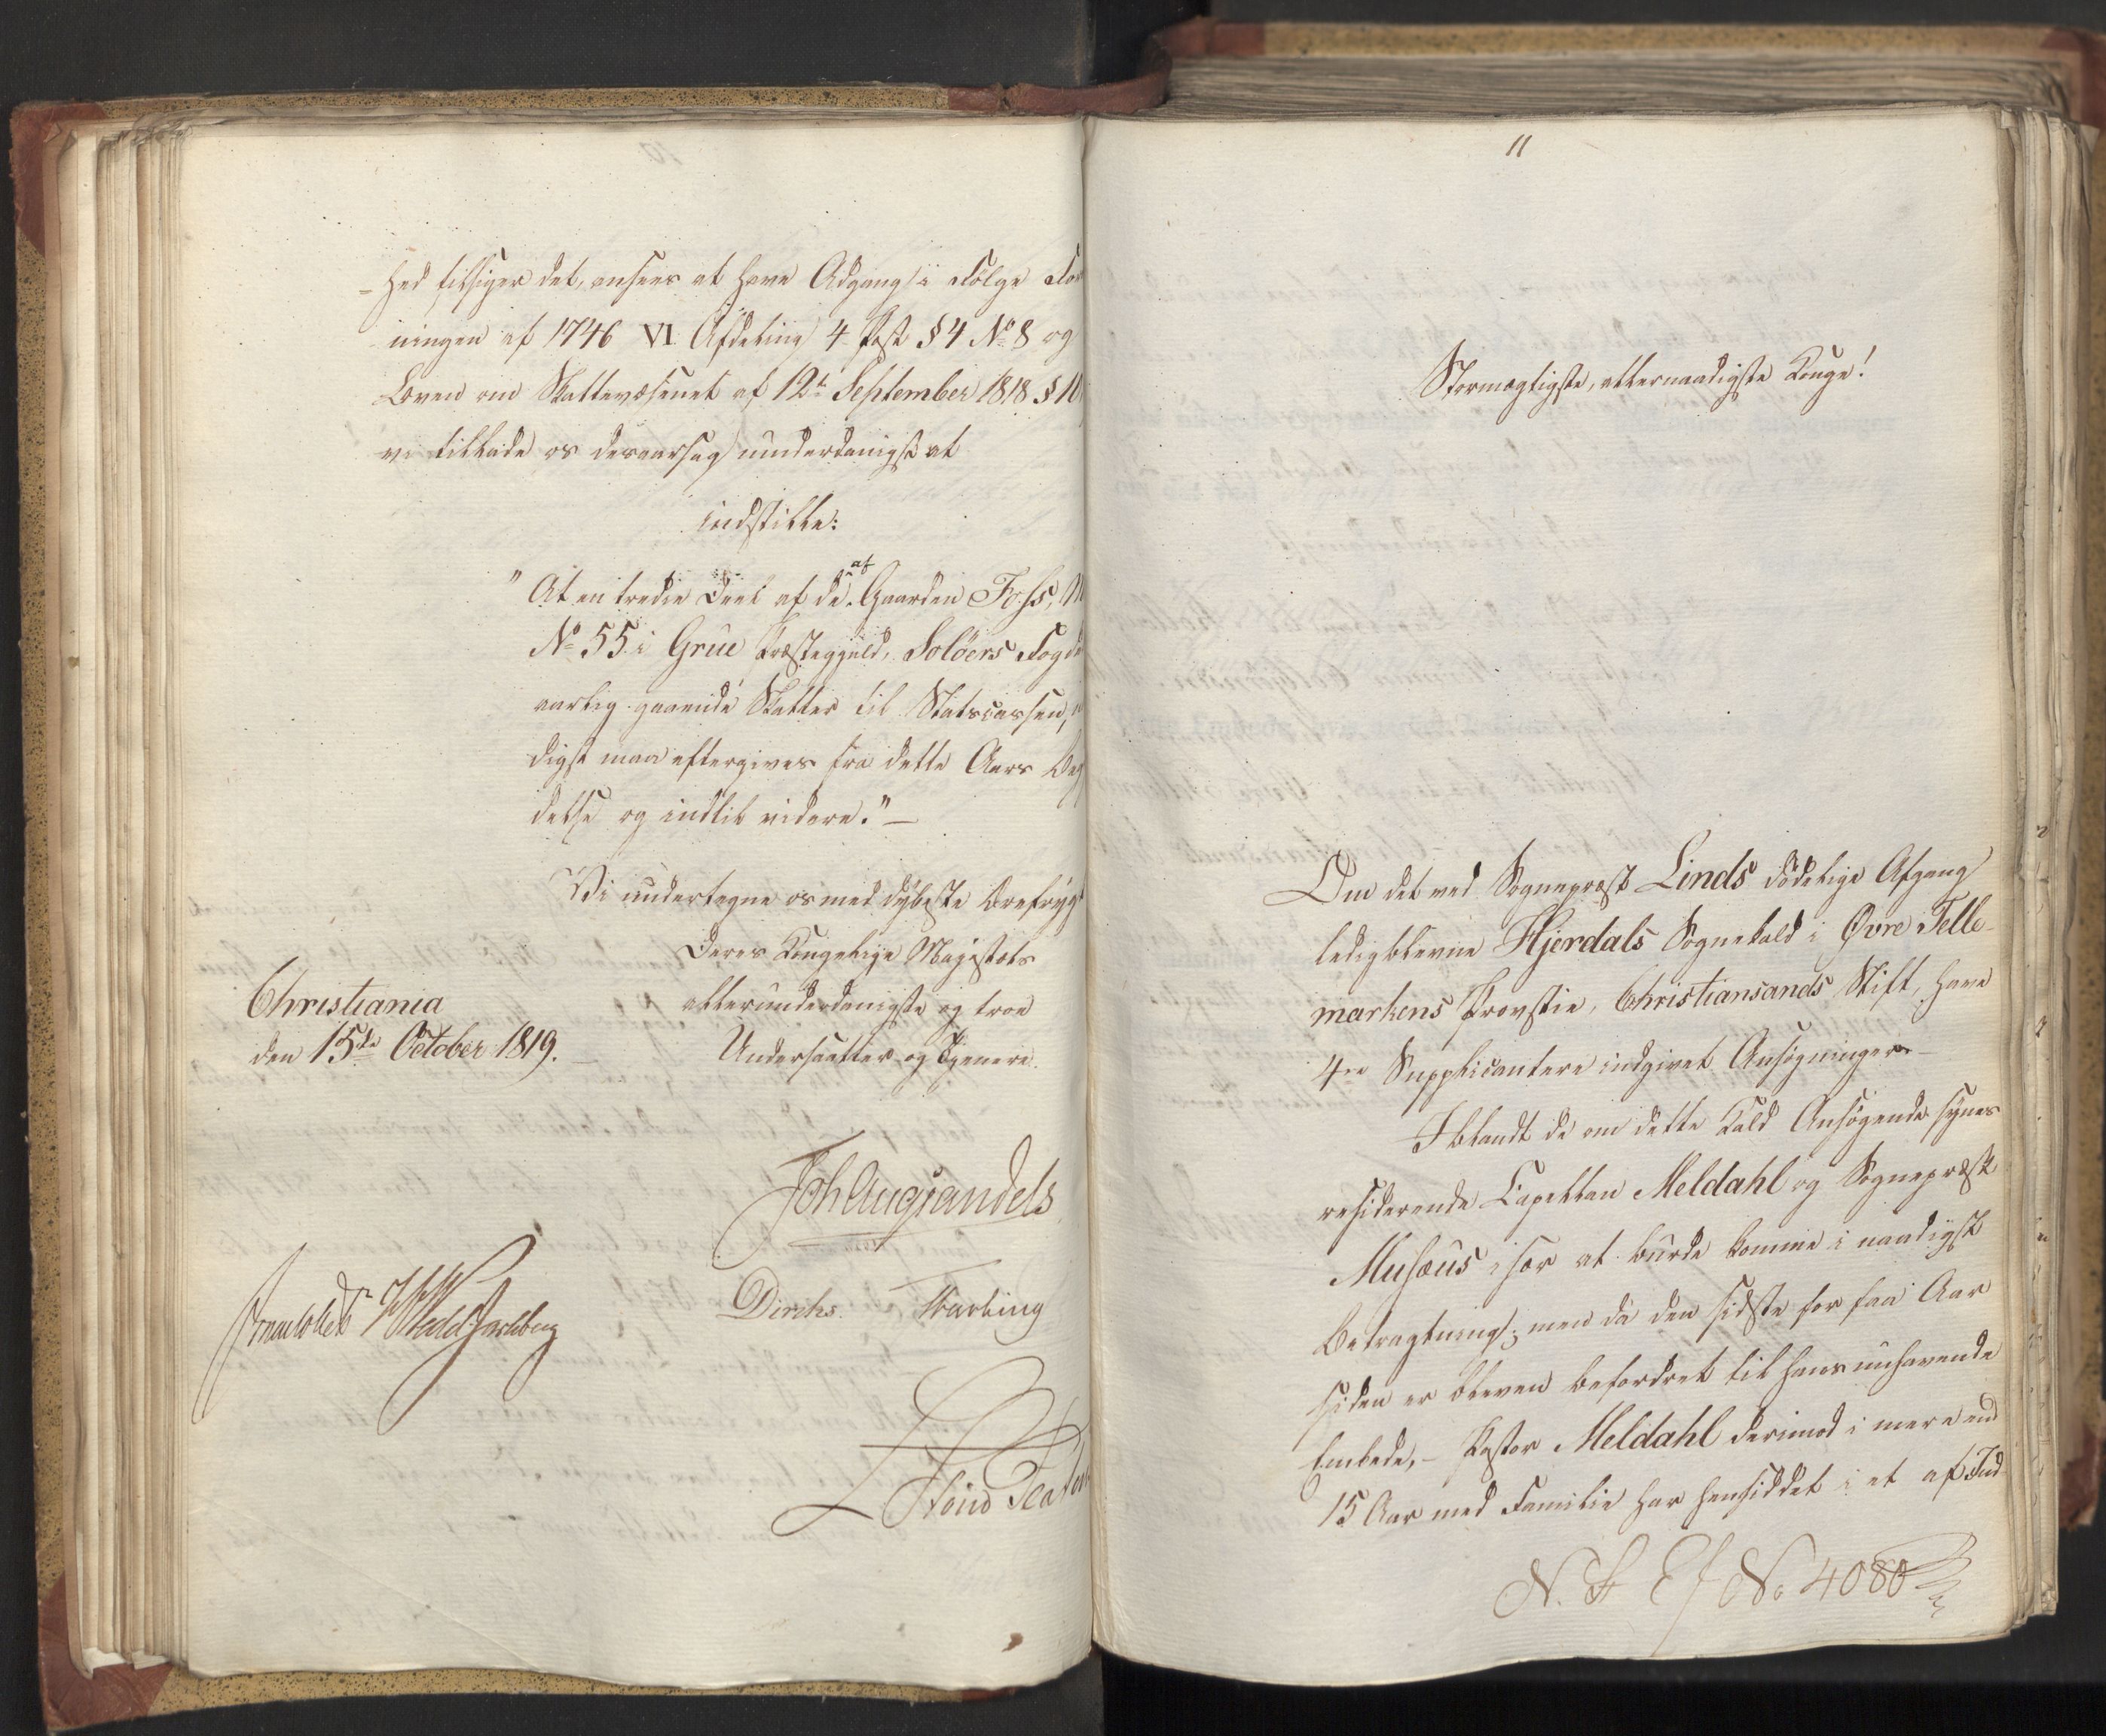 -hed tilsiger det, ansees at have Adgang i Følge For
ningen af 1746 VI Afdeling 4 Post § 4 No 8 og
Loven om Skattevæsenet af 12te September 1818 § 10
vi tillade os desaarsag underdanigst at
indstille:
"At en tredie Deel af de af Gaarden Foss, M
No 55 i Grue Præstegjeld, Solöers Fogde
aarlig gaaende Skatter til Statscassen,
digst maa eftergives fra dette Aars Beg
delse og indtil videre."-
Vi undertegne os med dybeste Ærefrygt
Deres Kongelige Majestæts
allerunderdanigste og troe
Undersaatter og Tjenere.
Christiania
den 15de October 1819.
Joh Aug Sandels
Diriks.
11
Stormægtigste, allernaadigste Konge!
Om det ved Sognepræst Linds dödelige Afgang
ledigblevne Hjerdals Sognekald i Øvre Telle-
markens Provstie, Christiansands Stift, have
4re Supplicantere indgivet Ansøgninger.-
Iblandt de om dette Kald Ansøgende synes
residerende Capellan Meldahl og Sognepræst
Musæus især at burde komme i naadigst
Betragtning; men da den sidste for faa Aar
siden er bleven befordret til hans nuhavende
Embede,- Pastor Meldahl derimod i mere end
15 Aar med Familie har hensiddet i et af Ind-
No 4080